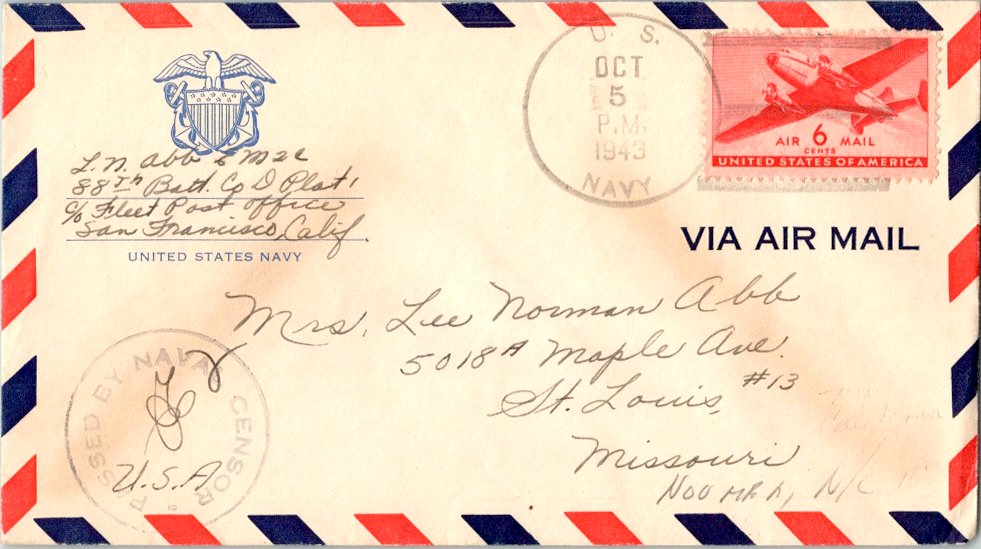 U. S.
OCT
5
P.M.
1943
NAVY
AIR 6 MAIL
CENTS
UNITED STATES OF AMERICA
L. N. Abb E M2c
88th Batt. Co D Plat 1
c/o Fleet Post Office
San Francisco, Calif.
UNITED STATES NAVY
VIA AIR MAIL
Mrs. Lee Norman Abb
5018A Maple Ave.
St. Louis, #13
Missouri
PASSED BY NAVAL CENSOR
U.S.A
Noumea, N/C